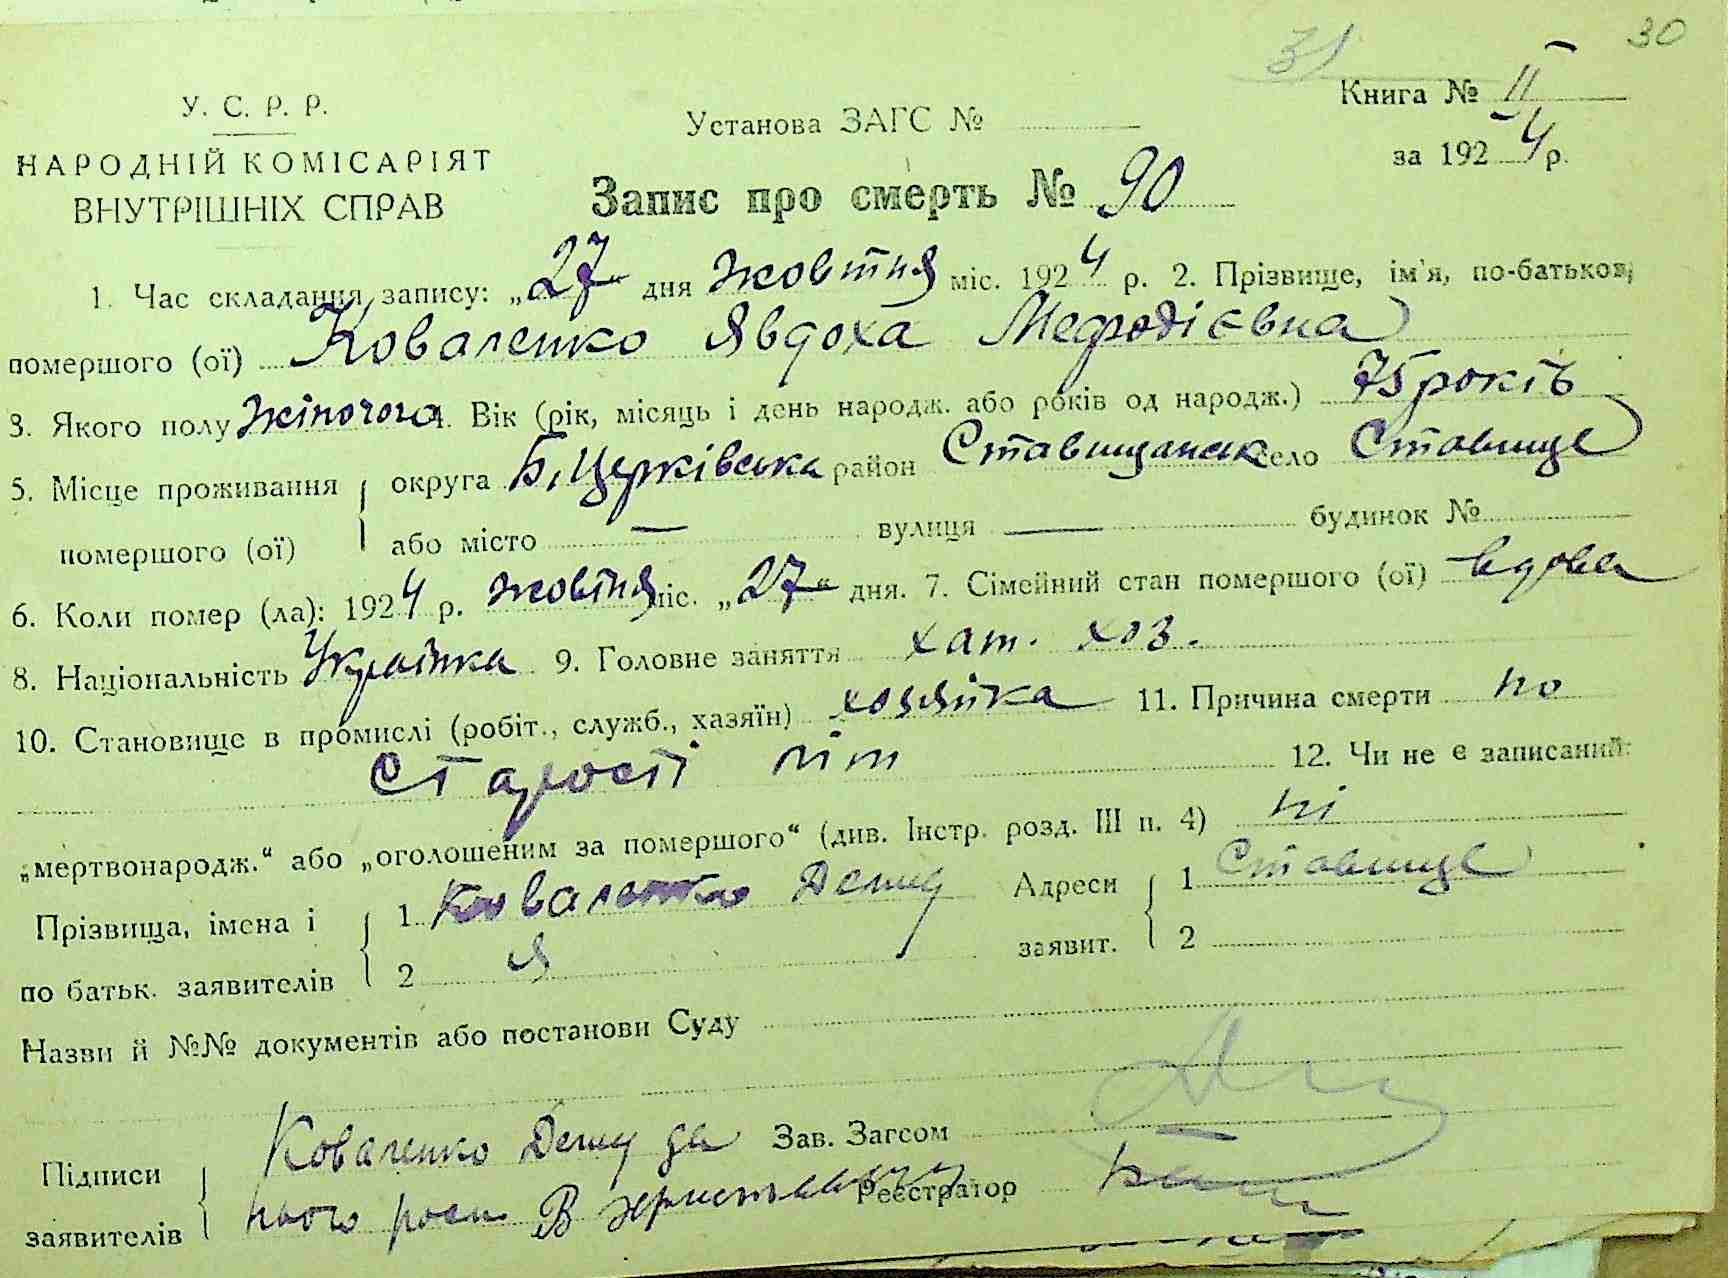 31 30
У. С. Р. Р.
НАРОДНІЙ КОМІСАРІЯТ
ВНУТРІШНІХ СПРАВ
Установа ЗАГС №
Книга № II
за 1924 р.
Запис про смерть № 90
1. Час складання запису: „27“ дня жовтня міс. 1924 р. 2. Прізвище, ім'я, по-батькові
помершого (ої) Коваленко Явдоха Мефодієвна
3. Якого полу жіночого 4. Вік (рік, місяць і день народж. або років од народж.) 75 років
5. Місце проживання округа Б. Церківська район Ставищанськ село Ставище
помершого (ої) або місто — вулиця — будинок №
6. Коли помер (ла): 1924 р. жовтня міс. „27“ дня. 7. Сімейний стан помершого (ої) вдова
8. Національність Українка 9. Головне заняття хат. хоз.
10. Становище в промислі (робіт., служб., хазяїн) хозяйка 11. Причина смерти по
старості літ 12. Чи не є записаний:
„мертвонародж.“ або „оголошеним за помершого“ (див. Інстр. розд. III п. 4) ні
Прізвища, імена і 1 Коваленко Демид Адреси 1 Ставище
по батьк. заявителів 2 заявит. 2
Назви й №№ документів або постанови Суду
Підписи Коваленко Демид за Зав. Загсом
заявителів нього роспи Реєстратор